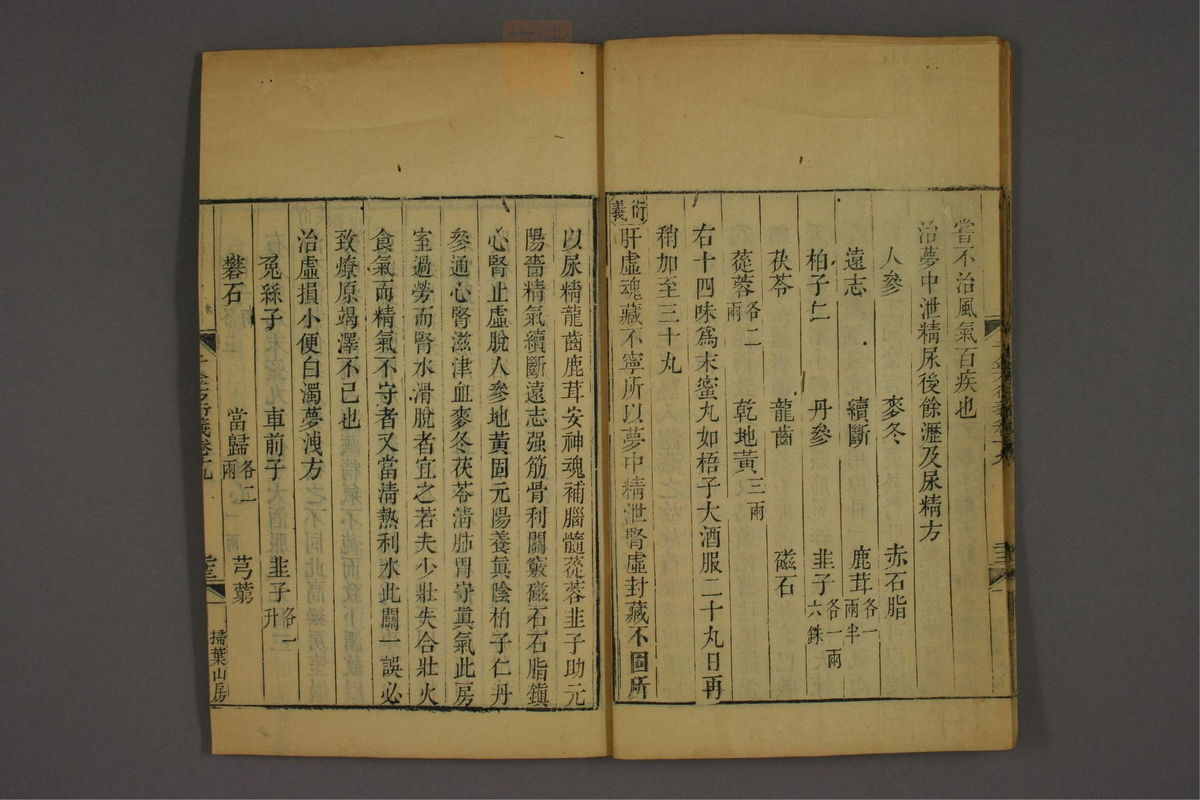 嘗不治風氣百疾也
治夢中泄精尿後餘瀝及尿精方
人參 麥冬 赤石脂
遠志 續斷 鹿茸各一兩半
柏子仁 丹參 韭子各一兩六銖
茯苓 龍齒 磁石
蓯蓉各二兩 乾地黃三兩
右十四味為末蜜丸如梧子大酒服二十丸日再
稍加至三十丸
衍義 肝虛魂藏不寧所以夢中精泄腎虛封藏不固所
以尿精龍齒鹿茸安神魂補腦髓蓯蓉韭子助元
陽嗇精氣續斷遠志强筋骨利關竅磁石石脂鎮
心腎止虛脫人參地黃固元陽養眞陰柏子仁丹
參通心腎滋津血麥冬茯苓清肺胃守眞氣此房
室過勞而腎水滑脫者宜之若夫少壯失合壯火
食氣而精氣不守者又當清熱利水此關一誤必
致燎原竭澤不已也
治虛損小便白濁夢洩方
兔絲子 車前子 韭子各一升
礬石 當歸各二兩 芎藭
掃葉山房